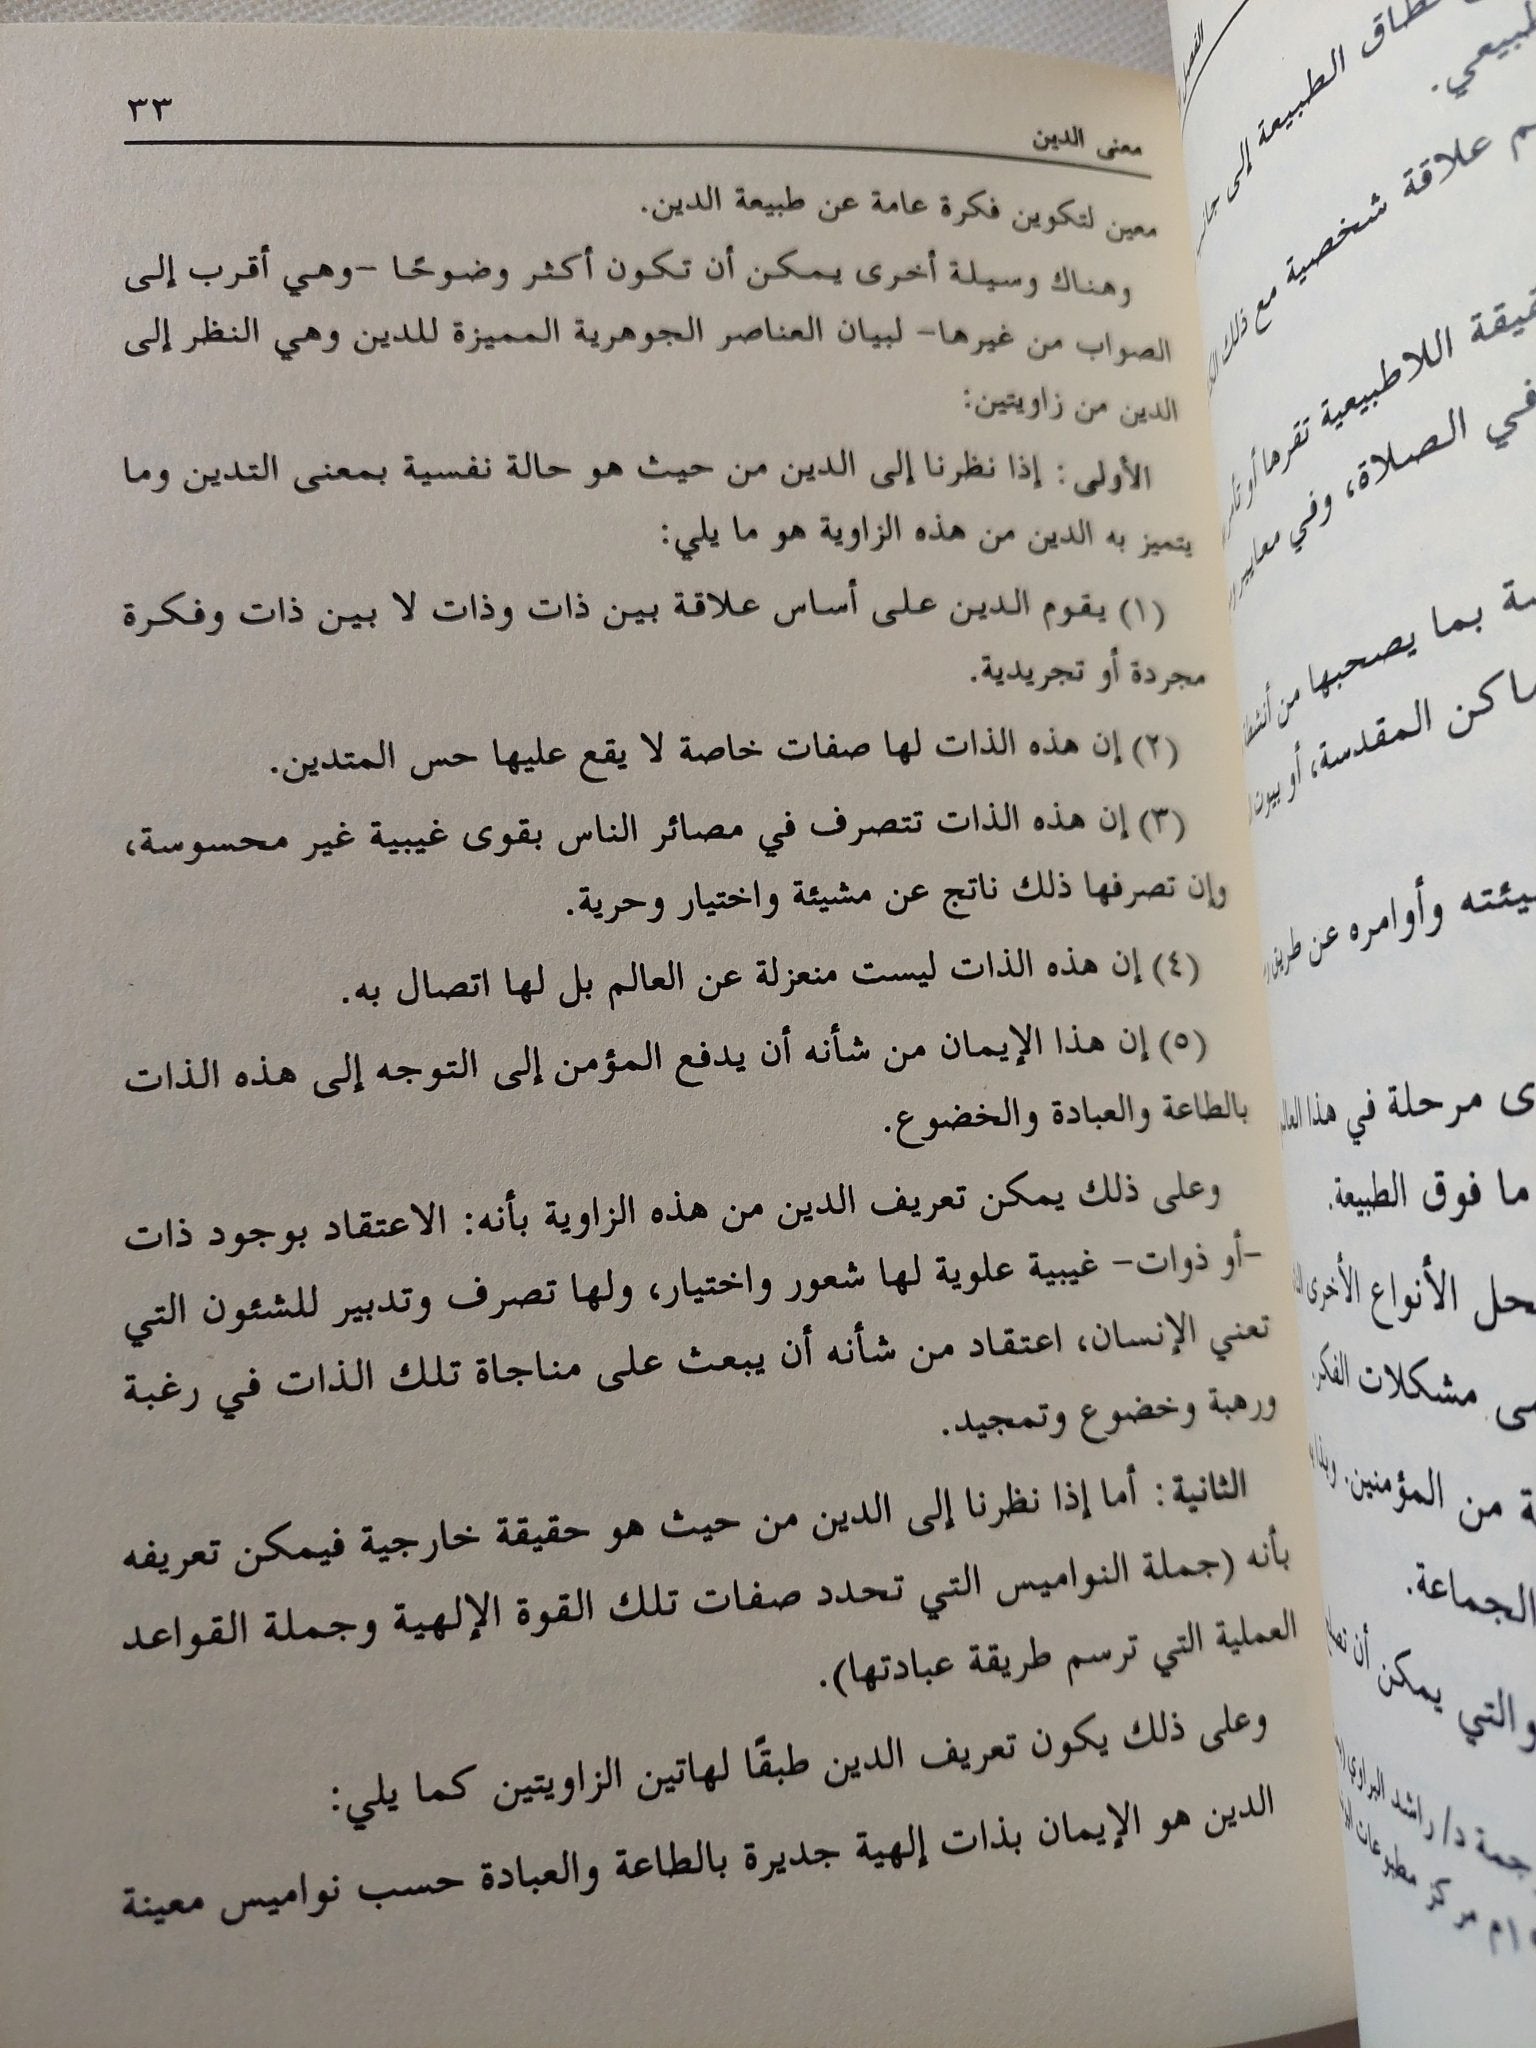 معنى الدين
٣٣
معين لتكوين فكرة عامة عن طبيعة الدين.
وهناك وسيلة أخرى يمكن أن تكون أكثر وضوحًا -وهي أقرب إلى
الصواب من غيرها- لبيان العناصر الجوهرية المميزة للدين وهي النظر إلى
الدين من زاويتين:
الأولى: إذا نظرنا إلى الدين من حيث هو حالة نفسية بمعنى التدين وما
يتميز به الدين من هذه الزاوية هو ما يلي:
(١) يقوم الدين على أساس علاقة بين ذات وذات لا بين ذات وفكرة
مجردة أو تجريدية.
(٢) إن هذه الذات لها صفات خاصة لا يقع عليها حس المتدين.
(٣) إن هذه الذات تتصرف في مصائر الناس بقوى غيبية غير محسوسة،
وإن تصرفها ذلك ناتج عن مشيئة واختيار وحرية.
(٤) إن هذه الذات ليست منعزلة عن العالم بل لها اتصال به.
(٥) إن هذا الإيمان من شأنه أن يدفع المؤمن إلى التوجه إلى هذه الذات
بالطاعة والعبادة والخضوع.
وعلى ذلك يمكن تعريف الدين من هذه الزاوية بأنه: الاعتقاد بوجود ذات
-أو ذوات- غيبية علوية لها شعور واختيار، ولها تصرف وتدبير للشئون التي
تعني الإنسان، اعتقاد من شأنه أن يبعث على مناجاة تلك الذات في رغبة
ورهبة وخضوع وتمجيد.
الثانية: أما إذا نظرنا إلى الدين من حيث هو حقيقة خارجية فيمكن تعريفه
بأنه (جملة النواميس التي تحدد صفات تلك القوة الإلهية وجملة القواعد
العملية التي ترسم طريقة عبادتها).
وعلى ذلك يكون تعريف الدين طبقًا لهاتين الزاويتين كما يلي:
الدين هو الإيمان بذات إلهية جديرة بالطاعة والعبادة حسب نواميس معينة
الطبيعة إلى
علاقة شخصية مع ذلك
اللاطبيعية تقرها أو
في الصلاة، وفي
بما يصحبها من
المقدسة، أو بيوت
وأوامره عن طريق
مرحلة في هذا
ما فوق الطبيعة.
الأنواع الأخرى
مشكلات
من المؤمنين.
الجماعة.
والتي يمكن أن
د/ راشد البراوي
مركز مطبوعات